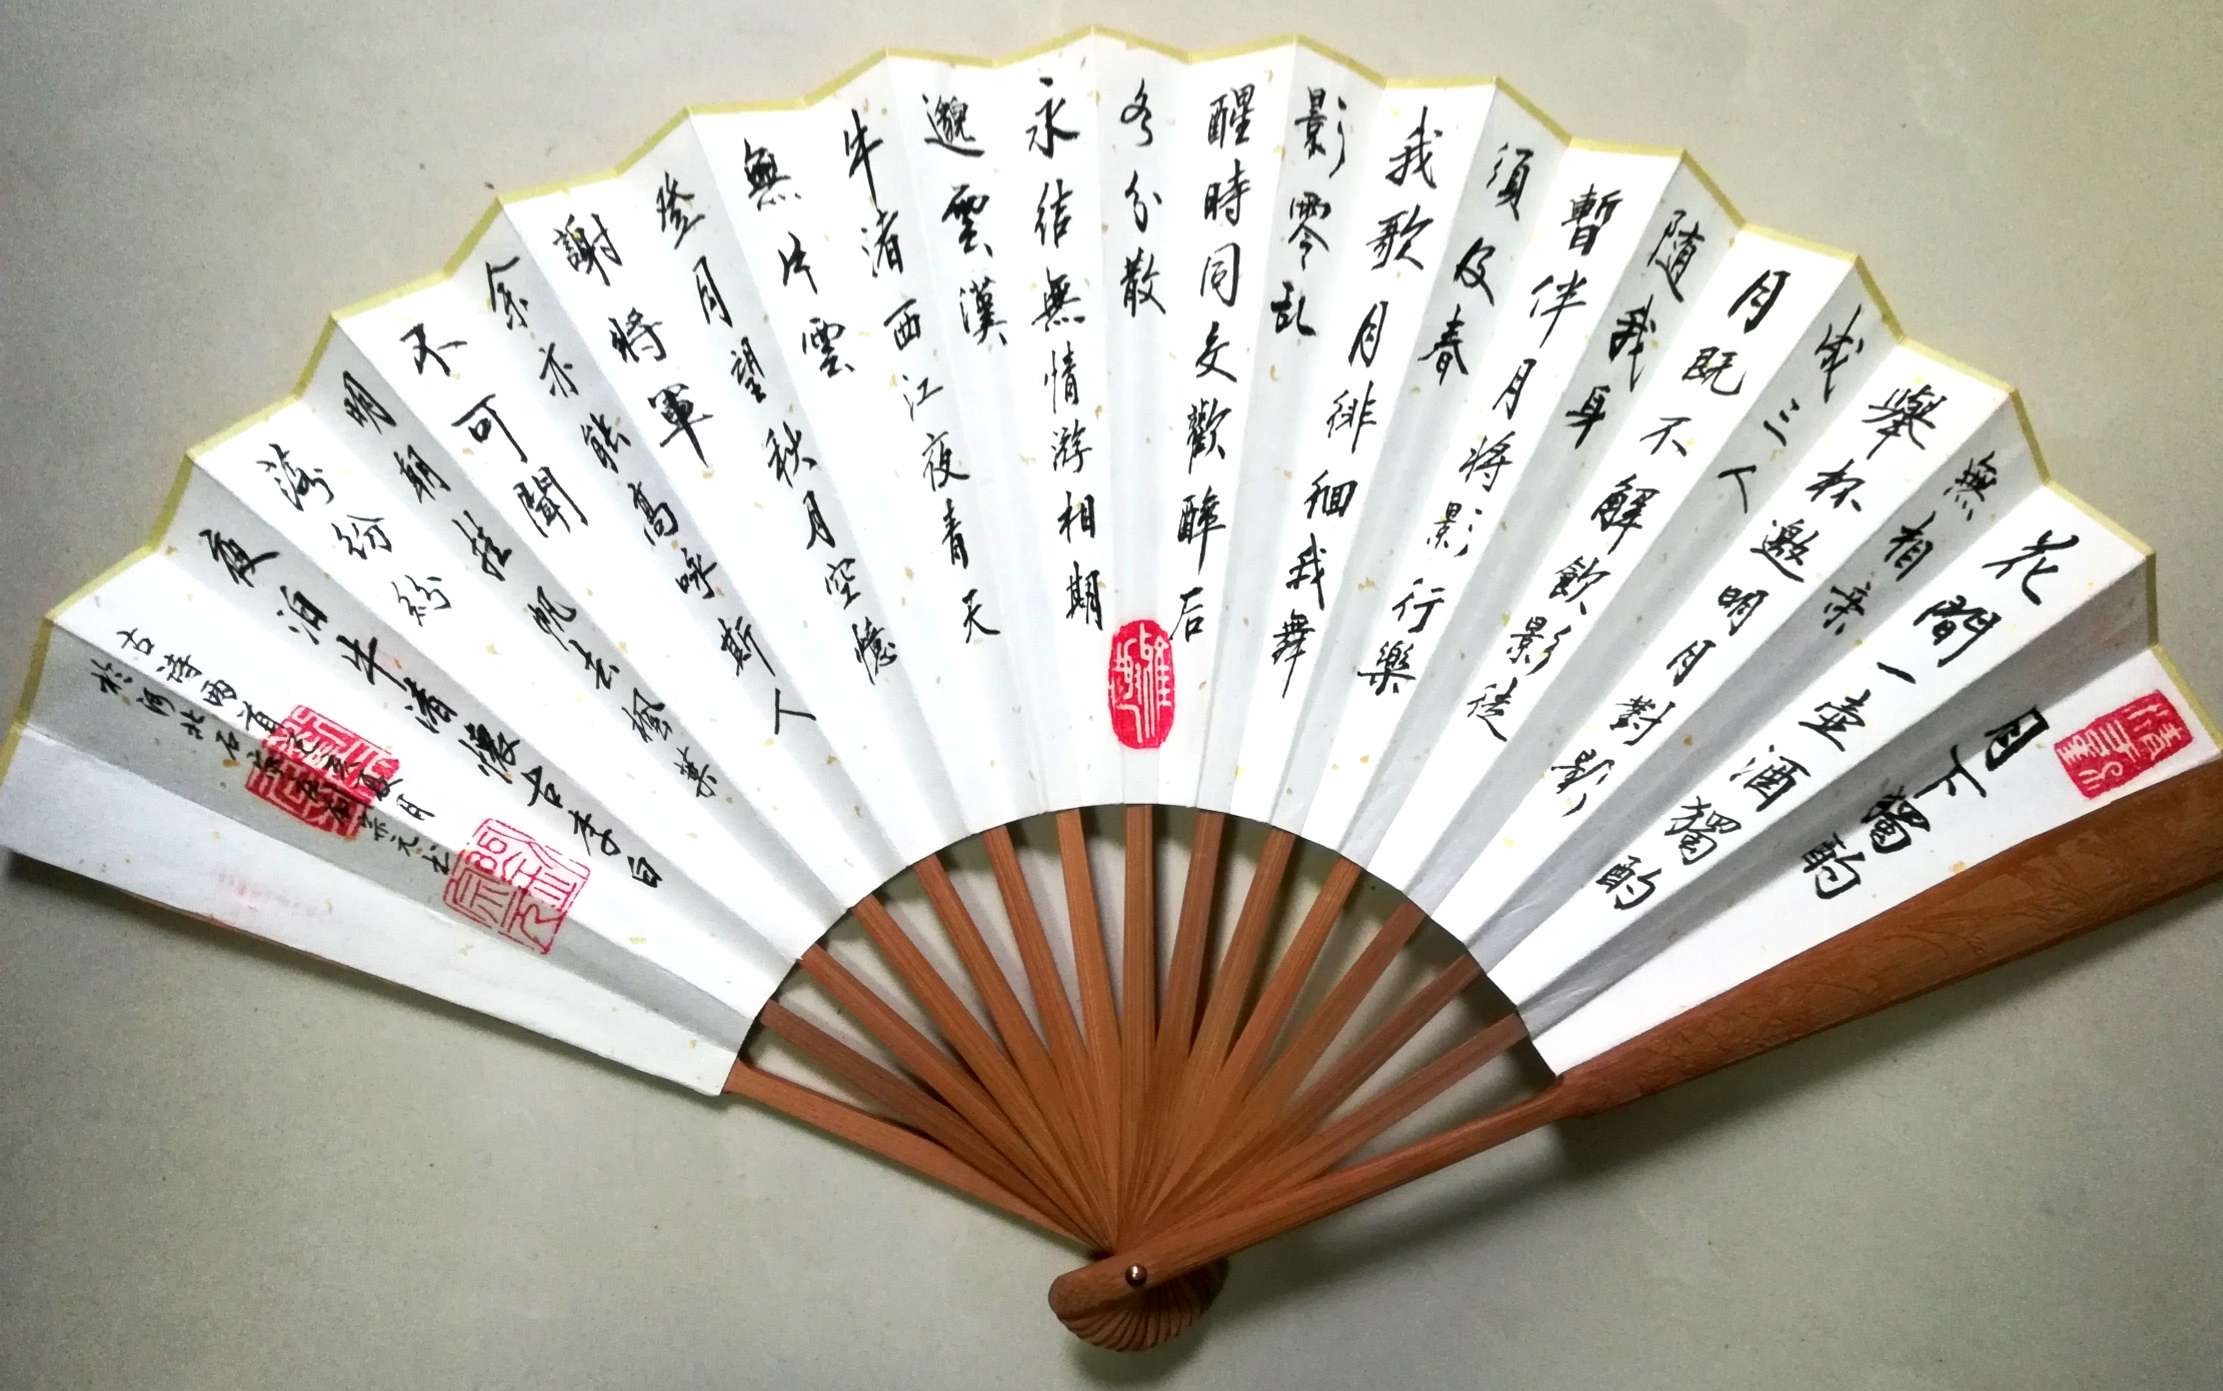 月下獨酌
花間一壺酒獨酌
無相親
舉杯邀明月對影
成三人
月既不解飲影徒
随我身
暫伴月將影行樂
須及春
我歌月徘徊我舞
影零乱
醒時同交歡醉后
各分散
永结無情游相期
邈雲漢
牛渚西江夜青天
無片雲
登月望秋月空憶
謝將軍
余亦能高咏斯人
不可聞
明朝挂帆去楓葉
落紛紛
夜泊牛渚懷古李白
古诗两首
於河北石